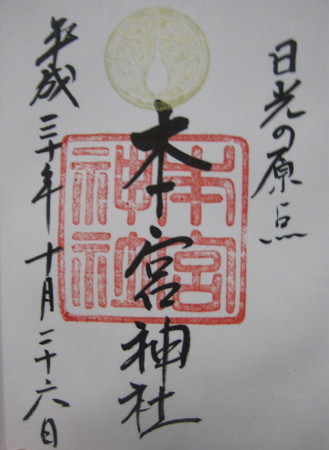 日光の原点
本宮神社
本宮
神社
平成三十年十月二十六日